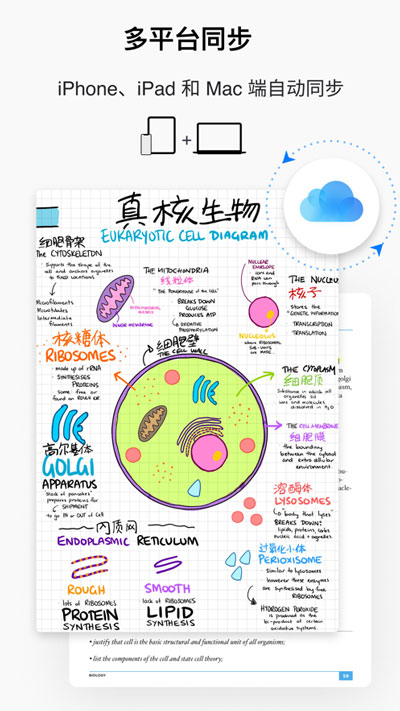 多平台同步
iPhone、iPad 和 Mac 端自动同步
真核生物
EUKARYOTIC CELL DIAGRAM
细胞骨架
THE CYTOSKELETON
Supports the shape of the
cell and anchors organelles
to fixed locations
Microfilaments
Microtubules
Intermediate
filaments
THE MITOCHONDRIA
线粒体
"THE POWERHOUSE of the CELL"
BREAKS DOWN
GLUCOSE
PRODUCES ATP
OXIDATIVE
PHOSPHORYLATION
INNER MEMBRANE
NUCLEAR
ENVELOPE
ions and
RNA can
pass through
NUCLEOLUS
where RIBOSOMAL
SUB-UNITS
are MADE
THE NUCLEUS
核子
Stores the
"GENETIC INFORMATION"
TRANSCRIPTION
TRANSLATION
核糖体
RIBOSOMES
made up of rRNA
SYNTHESISES
PROTEINS
Some free or
found on ROUGH ER
细胞壁
THE CELL WALL
THE CYTOPLASM
细胞质
Substance in which all
organelles sit
ions and molecules
dissolved in H2O
THE CELL MEMBRANE
细胞膜
the boundary
between the cytosol
and extra cellular
environment.
高尔基体
GOLGI
APPARATUS
"Stack of pancakes"
prepares proteins for
SHIPMENT
to go IN or OUT of Cell
溶酶体
LYSOSOMES
"body that lyses"
BREAKS DOWN:
lipids, proteins, carbs
nucleic acid + organelles
内质网
ENDOPLASMIC RETICULUM
ROUGH
lots of RIBOSOMES
PROTEIN
SYNTHESIS
SMOOTH
lack of RIBOSOMES
LIPID
SYNTHESIS
过氧化小体
PEROXISOME
Similar to lysosomes
however these enzymes
are synthesised by free
RIBOSOMES
HYDROGEN PEROXIDE
is produced as the
bi-product of certain
oxidative systems.
• justify that cell is the basic structural and functional unit of all organisms;
• list the components of the cell and state cell theory;
BIOLOGY
59